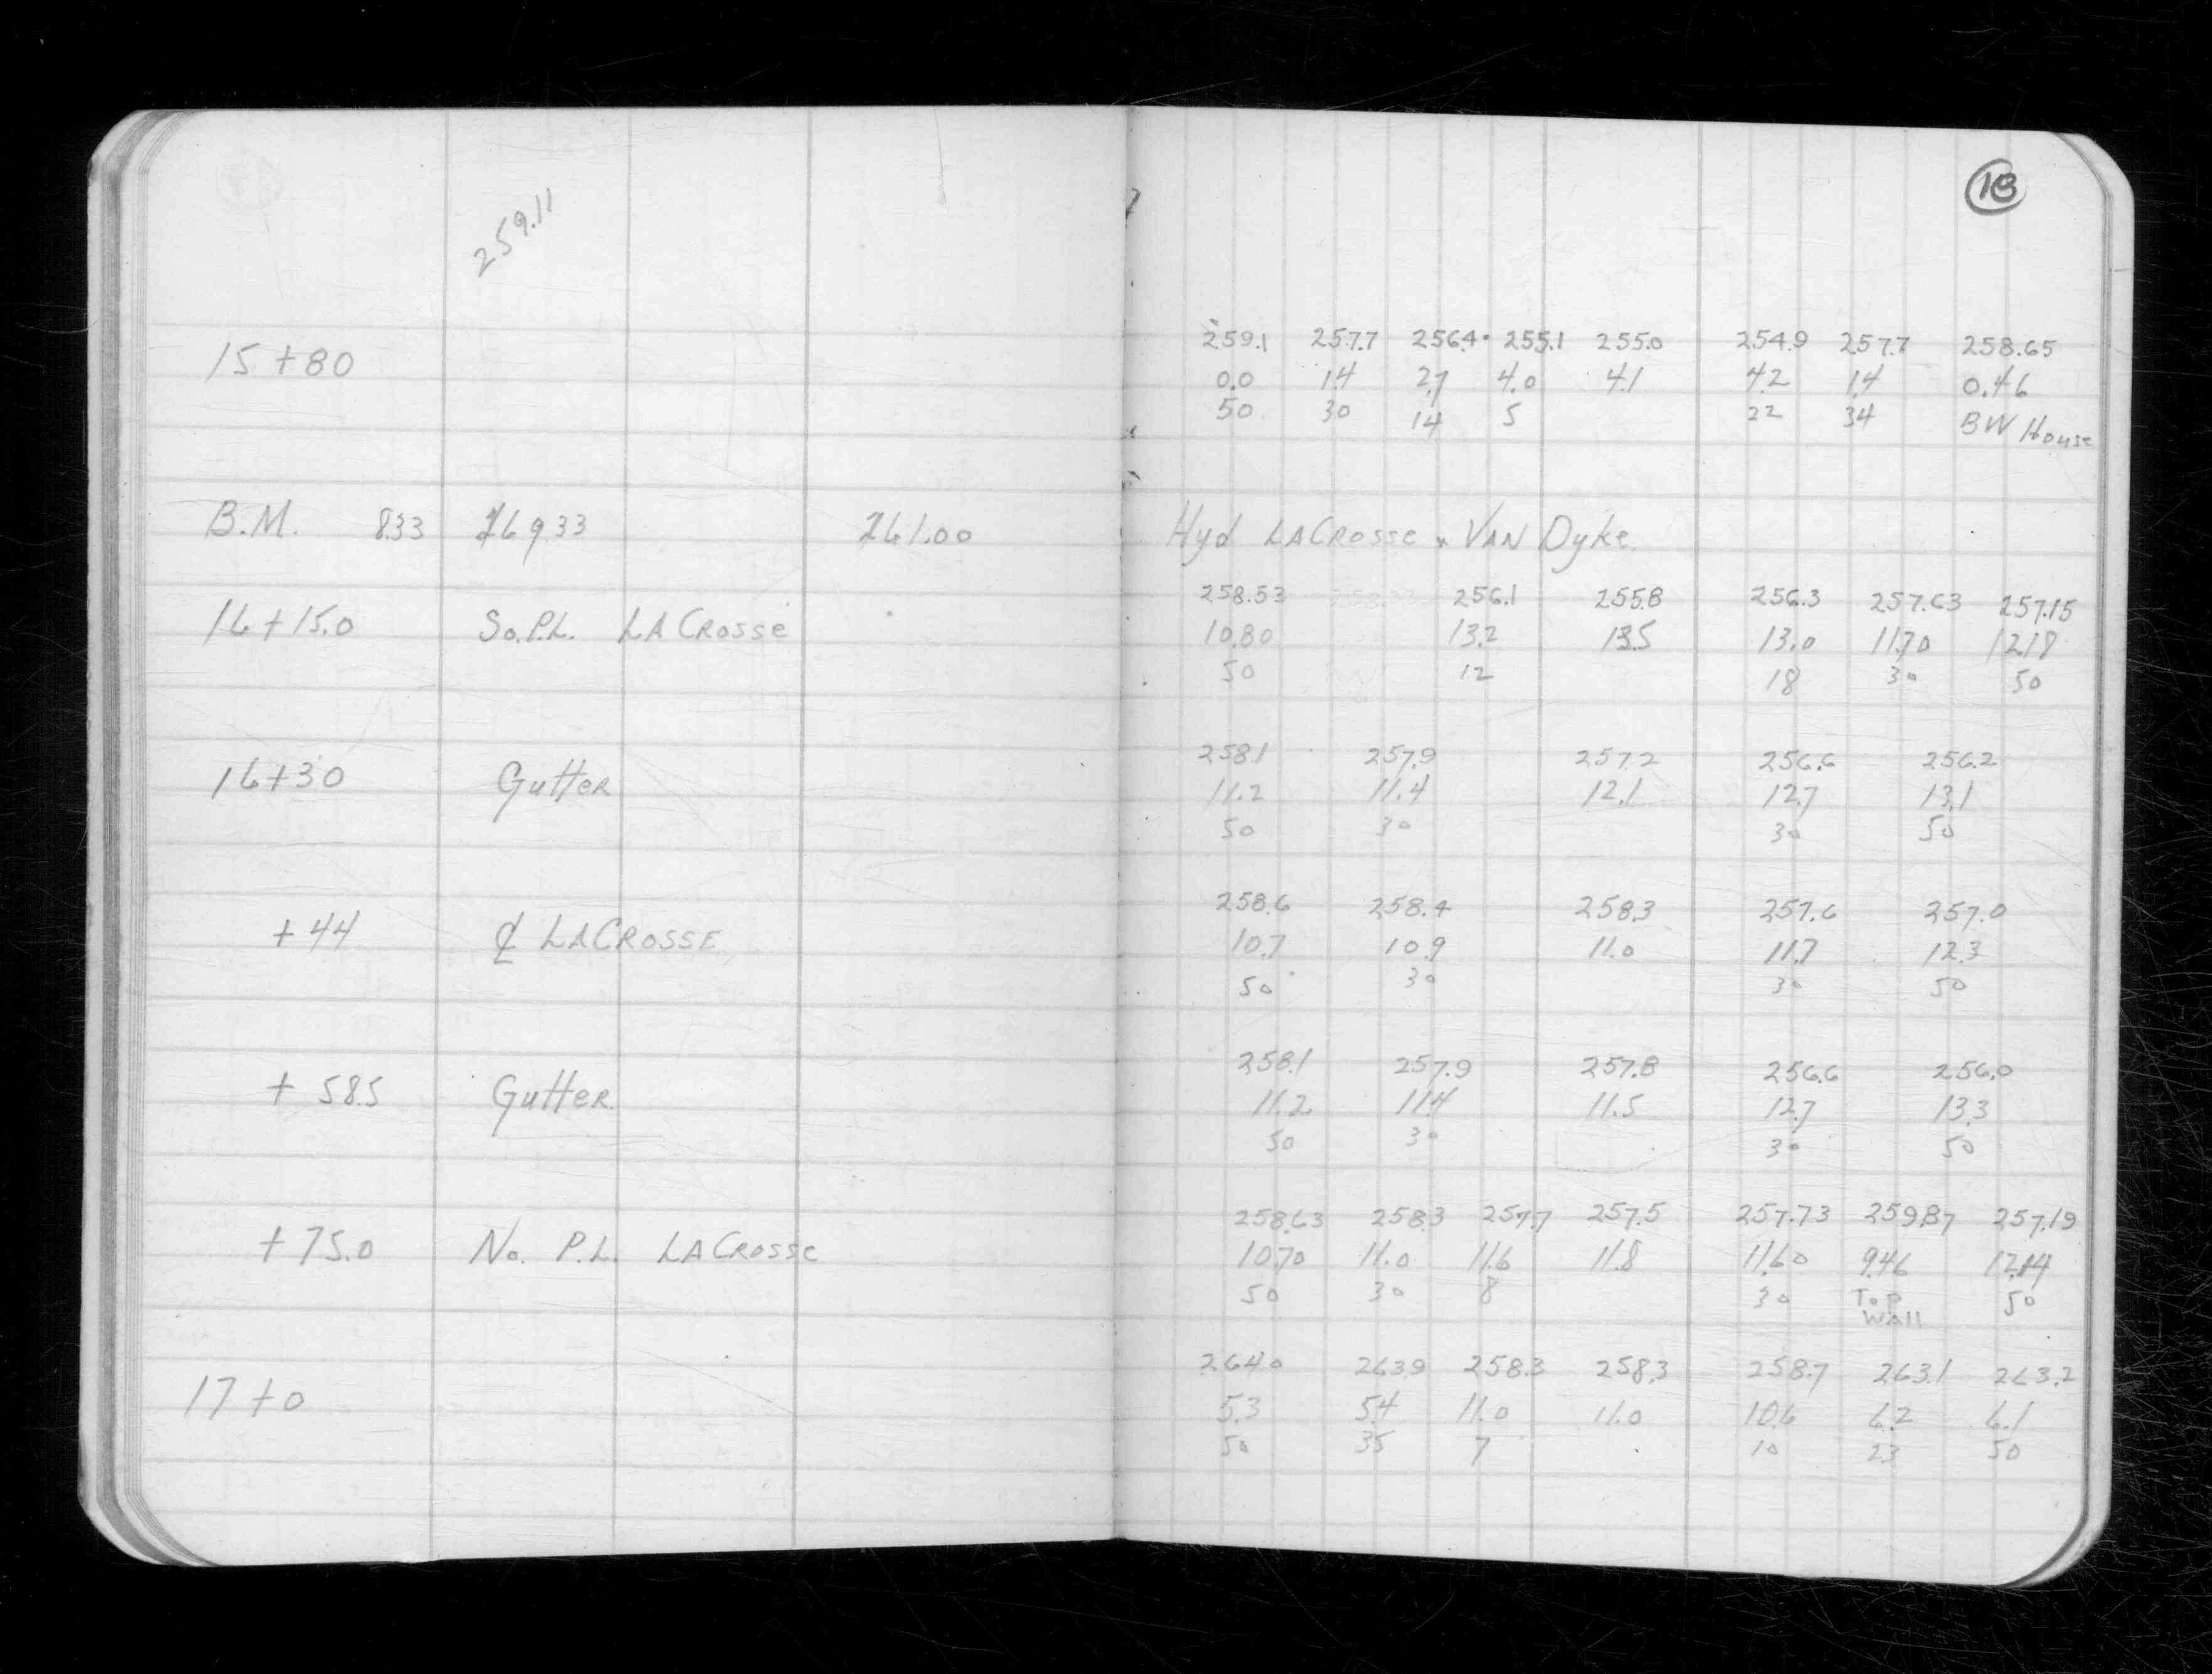 18
259.11
259.1 257.7 256.4 255.1 255.0 254.9 257.7 258.65
15+80 0.0 1.4 2.7 4.0 4.1 4.2 1.4 0.46
50 30 14 5 22 34 BW House
B.M. 8.33 269.33 261.00 Hyd LACROSSE & VAN Dyke
258.53 256.1 255.8 256.3 257.63 257.15
16+15.0 So.P.L. LACROSSE 10.80 13.2 13.5 13.0 11.70 12.18
50 12 18 30 50
258.1 257.9 257.2 256.6 256.2
16+30 Gutter 11.2 11.4 12.1 12.7 13.1
50 30 30 50
258.6 258.4 258.3 257.6 257.0
+44 ℄ LACROSSE 10.7 10.9 11.0 11.7 12.3
50 30 30 50
258.1 257.9 257.8 256.6 256.0
+58.5 Gutter 11.2 11.4 11.5 12.7 13.3
50 30 30 50
258.63 258.3 257.7 257.5 257.73 259.87 257.19
+75.0 No. P.L. LACROSSE 10.70 11.0 11.6 11.8 11.60 9.46 12.14
50 30 8 30 Top Wall 50
264.0 263.9 258.3 258.3 258.7 263.1 263.2
17+0 5.3 5.4 11.0 11.0 10.6 6.2 6.1
50 35 7 10 23 50